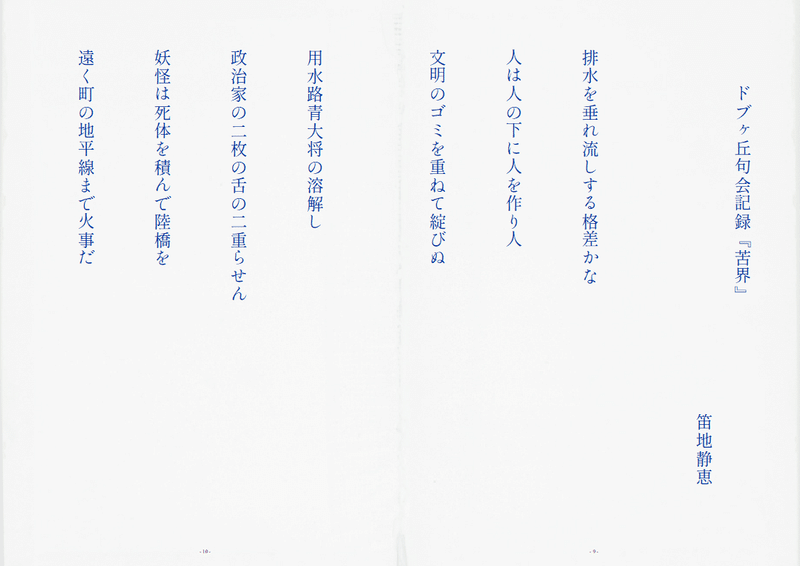 ドブヶ丘句会記録『苦界』
笛地静恵
排水を垂れ流しする格差かな
人は人の下に人を作り人
文明のゴミを重ねて綻びぬ
- 9 -
用水路青大将の溶解し
政治家の二枚の舌の二重らせん
妖怪は死体を積んで陸橋を
遠く町の地平線まで火事だ
- 10 -